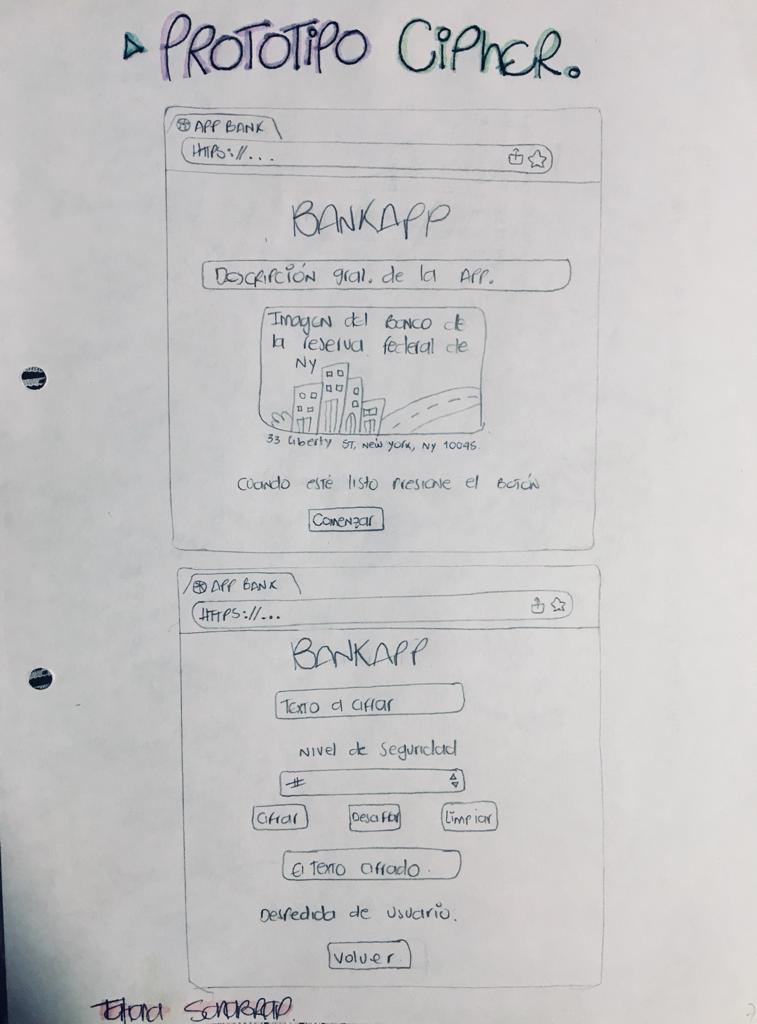 PROTOTIPO CIPHER.
APP BANK
HTTPS://...
BANKAPP
DESCRIPCIÓN gral. de la APP.
Imagen del Banco de
la reserva federal de
NY
33 Liberty ST, New York, NY 10045.
Cuando esté listo presione el Botón
Comenzar
APP BANK
HTTPS://...
BANKAPP
Texto a cifrar
Nivel de Seguridad
#
Cifrar Limpiar
El Texto cifrado.
Despedida de usuario.
Volver.